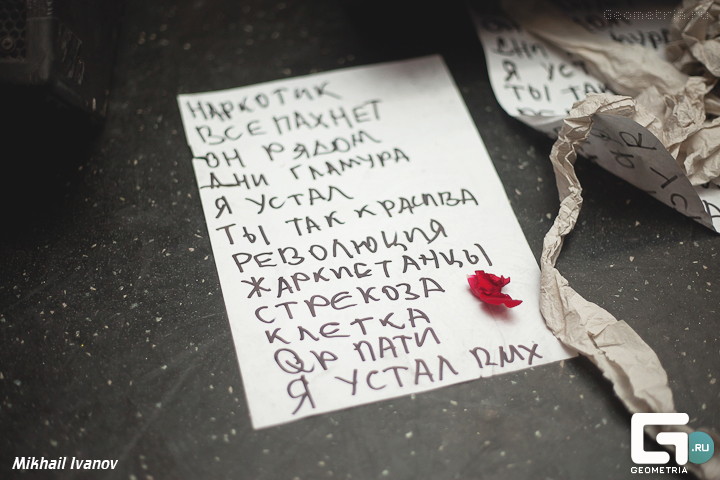 Geometria.ru
НАРКОТИК
ВСЕ ПАХНЕТ
ОН РЯДОМ
ДНИ ГЛАМУРА
Я УСТАЛ
ТЫ ТАК КРАСИВА
РЕВОЛЮЦИЯ
ЖАРКИСТАНЦЫ
СТРЕКОЗА
КЛЕТКА
QP ПАТИ
Я УСТАЛ RMX
ДНИ
Я УСТ
ТЫ ТАК
Mikhail Ivanov
G .RU
GEOMETRIA